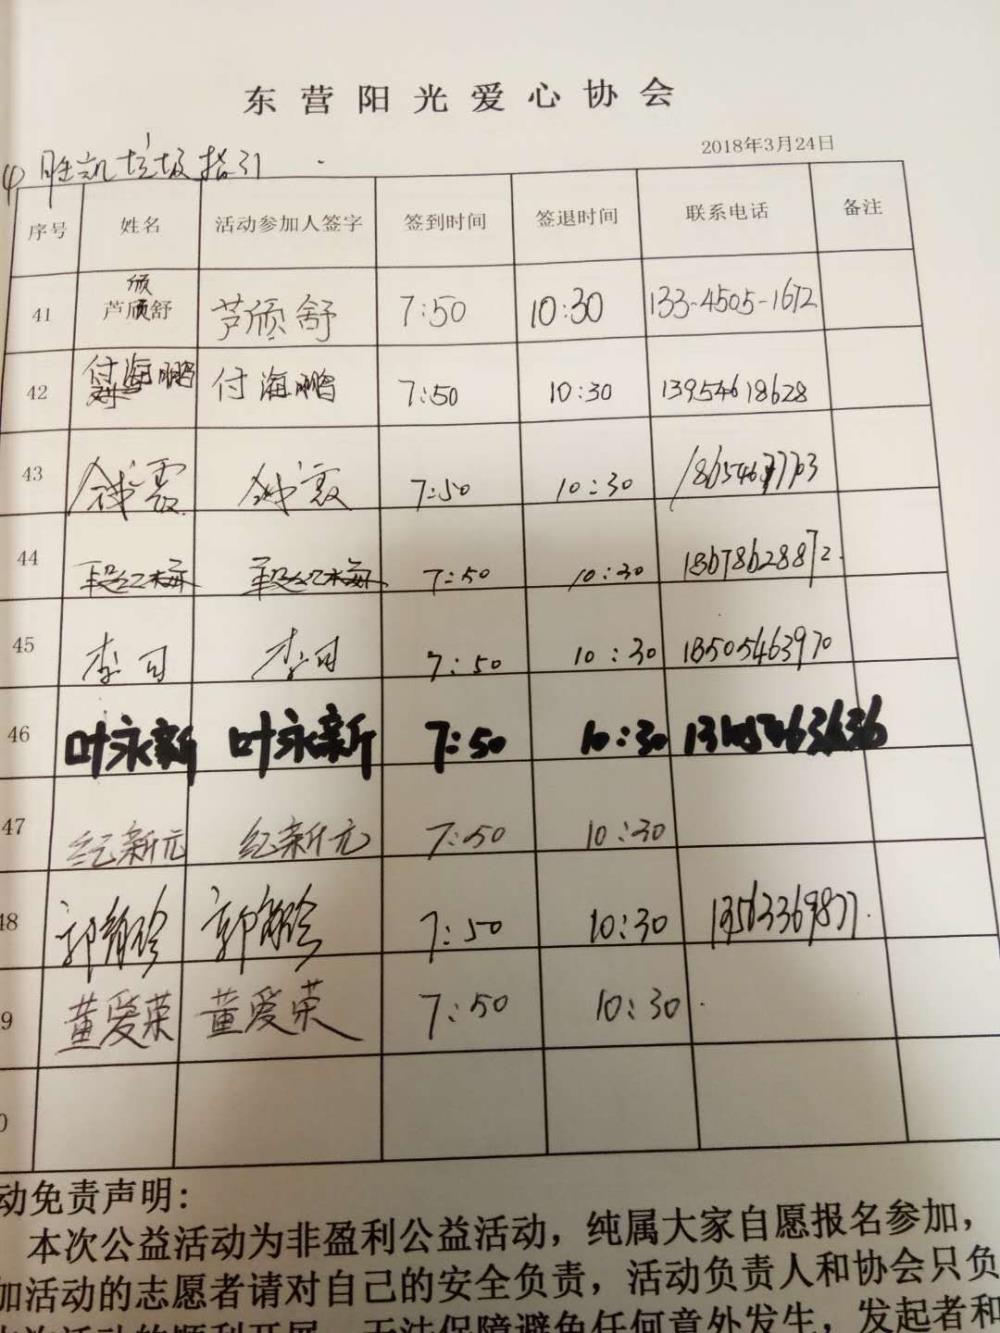 东营阳光爱心协会
2018年3月24日
胜凯垃圾指引
序号 姓名 活动参加人签字 签到时间 签退时间 联系电话 备注
颀
41 芦颀舒 芦颀舒 7:50 10:30 133-4505-1672
42 付海鹏 付海鹏 7:50 10:30 13954618628
43 7:50 10:30
44 段红梅 段红梅 7:50 10:30 18678628872
45 李月 李月 7:50 10:30 18505463970
46 叶永新 叶永新 7:50 10:30
47 纪新元 纪新元 7:50 10:30
48 7:50 10:30 13563369877
9 董爱荣 董爱荣 7:50 10:30
0
动免责声明：
本次公益活动为非盈利公益活动，纯属大家自愿报名参加，
加活动的志愿者请对自己的安全负责，活动负责人和协会只负
本次活动的顺利开展，无法保障避免任何意外发生，发起者和